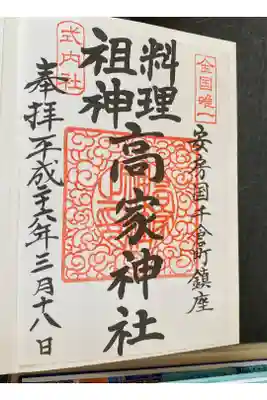 全国唯一
安房国千倉町鎮座
料理
祖神
高家神社
式内社
奉拝平成二十六年三月十八日